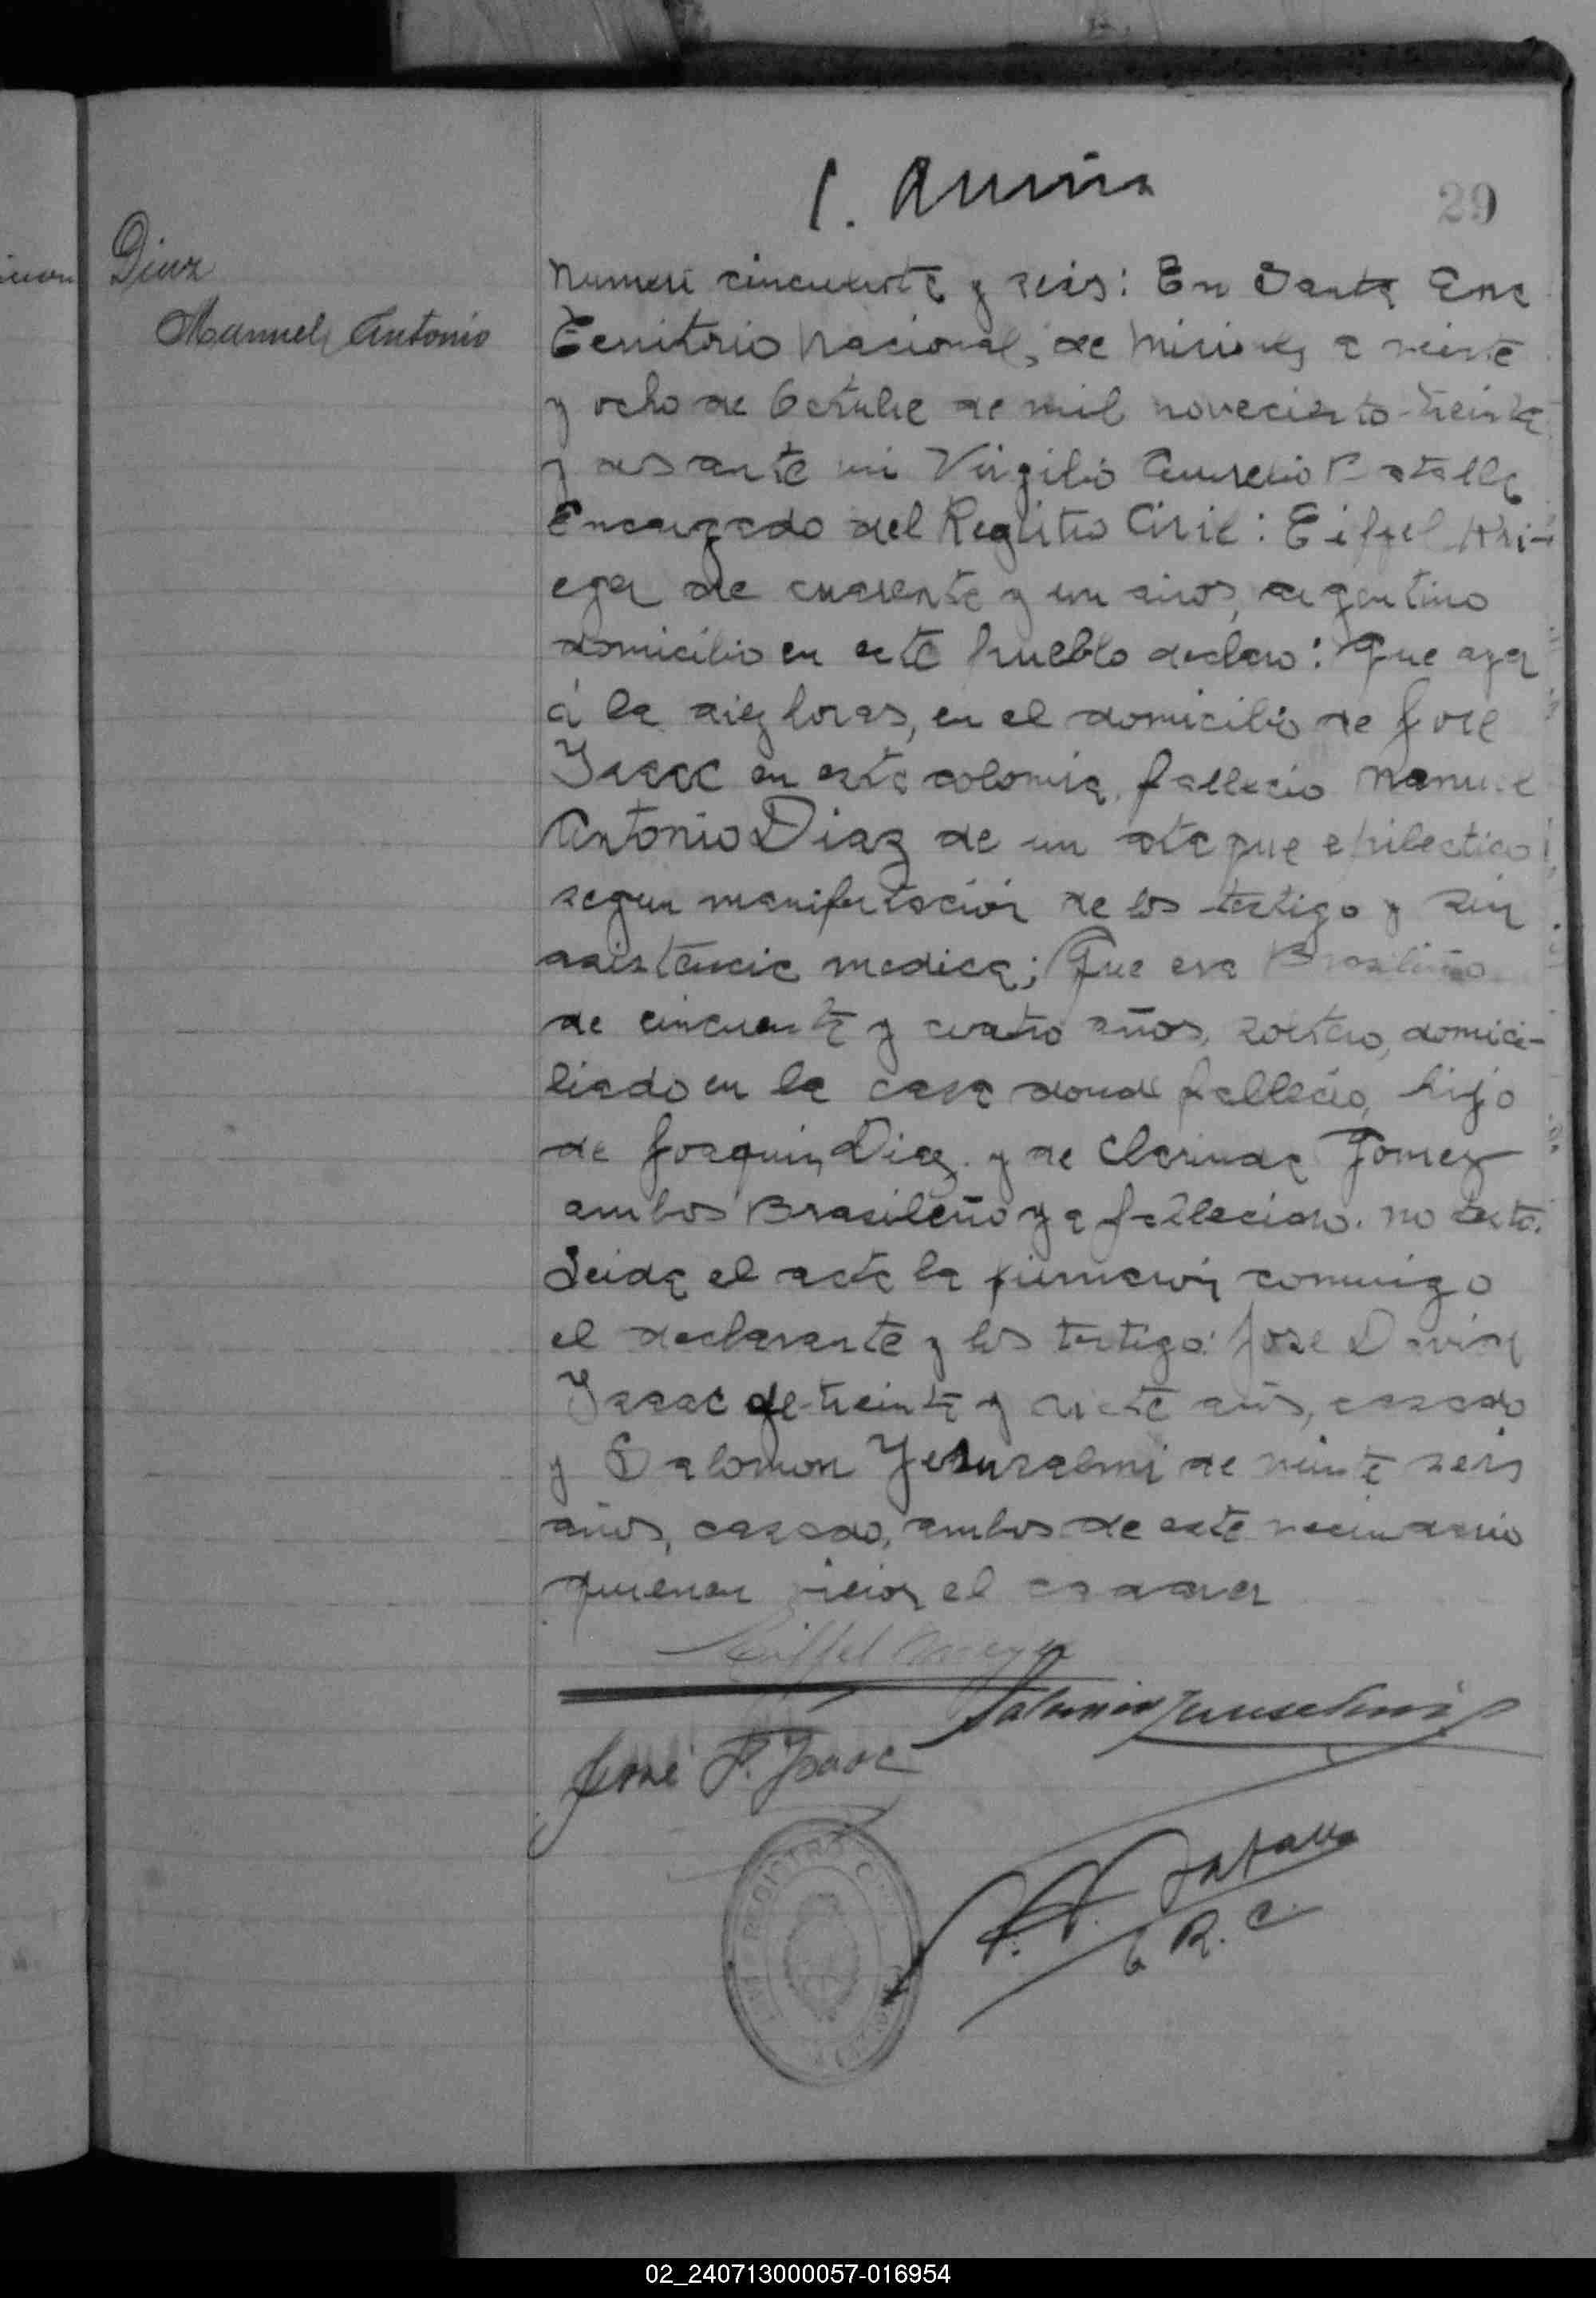 29
Diaz
Manuel Antonio
Numero cincuenta y seis: En Santa Ana
Territorio Nacional, de Misiones a veinte
y ocho de Octubre de mil novecientos treinta
y dos ante mi Virgilio Aurelio Batalla
Encargado del Registro Civil: Eiffel
de cuarenta y un años, argentino
domicilio en este pueblo declaro: Que ayer
á la diez horas, en el domicilio de Jose
Isaac en esta colonia, fallecio Manuel
Antonio Diaz de un ataque epilectico
segun manifestación de los testigo y sin
asistencia medica; Que era Brasileño
de cincuenta y cuatro años, soltero, domici-
liado en la casa donde fallecio, hijo
de Joaquin Diaz y de Clarinda Gomez
ambos Brasileño ya fallecido. no testo.
Leida el acta la firmaron conmigo
el declarante y los testigo: Jose David
Isaac de treinta y siete años, casado
y Salomon Yerusalmi de veinte seis
años, casado, ambos de este vecindario
quienes vieron el cadaver
Eiffel
Salomon Yeruselmi
José D. Isaac
V. A. Batalla
E R. C.
REGISTRO CIVIL
02_240713000057-016954